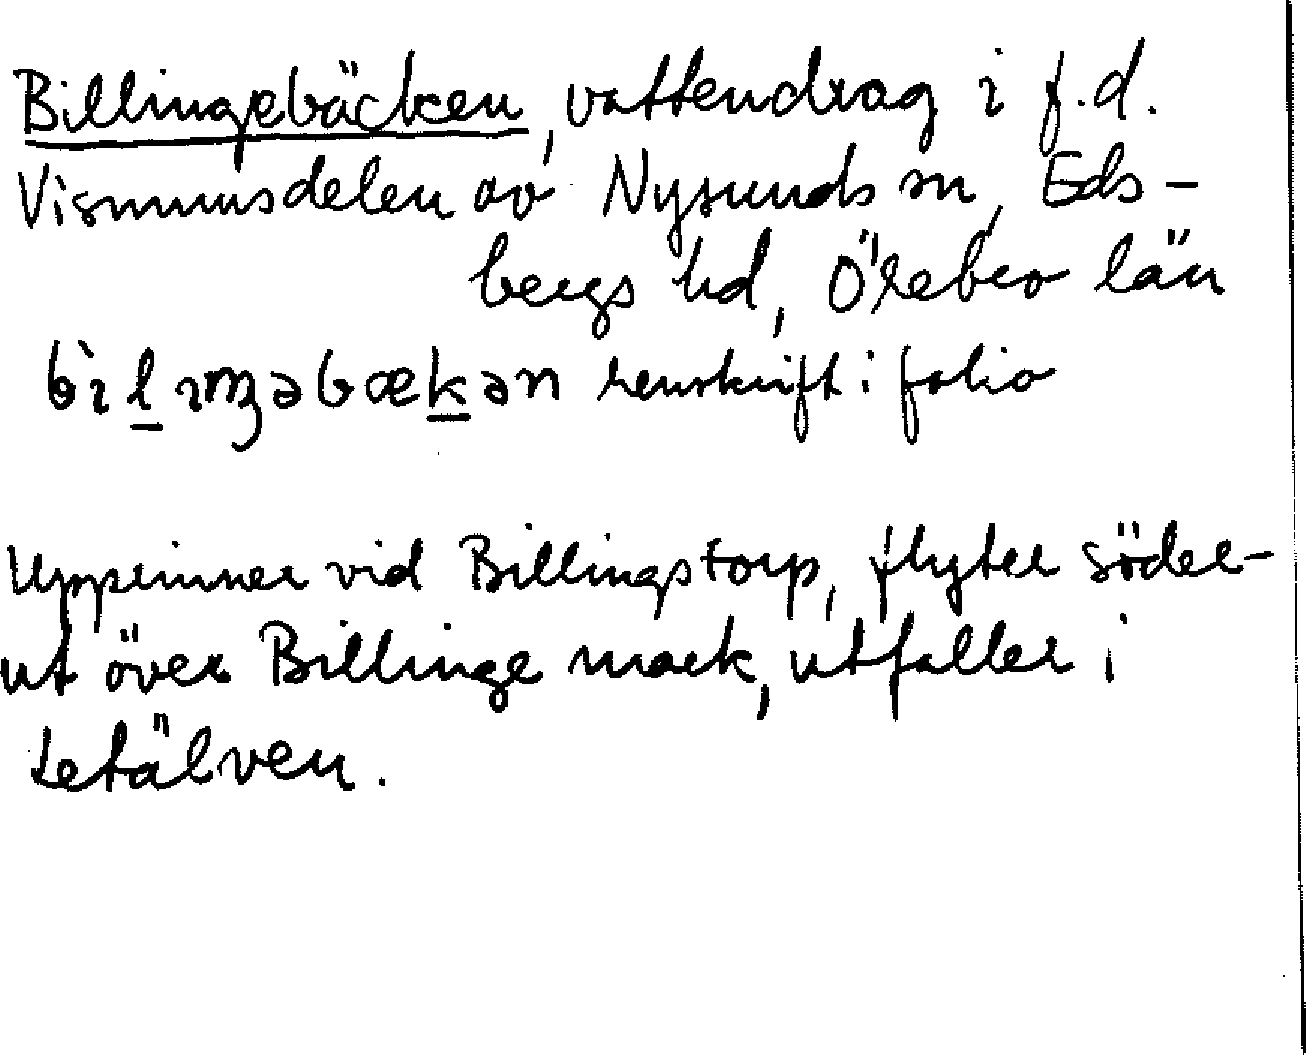 Billingebäcken, vattendrag i f.d.
Vismumsdelen av Nysunds sn, Eds-
bergs hd, Örebro län
bìlıŋəbækən renskrift i folio
Upprinner vid Billingstorp, flyter söder-
ut över Billinge mark, utfaller i
Letälven.